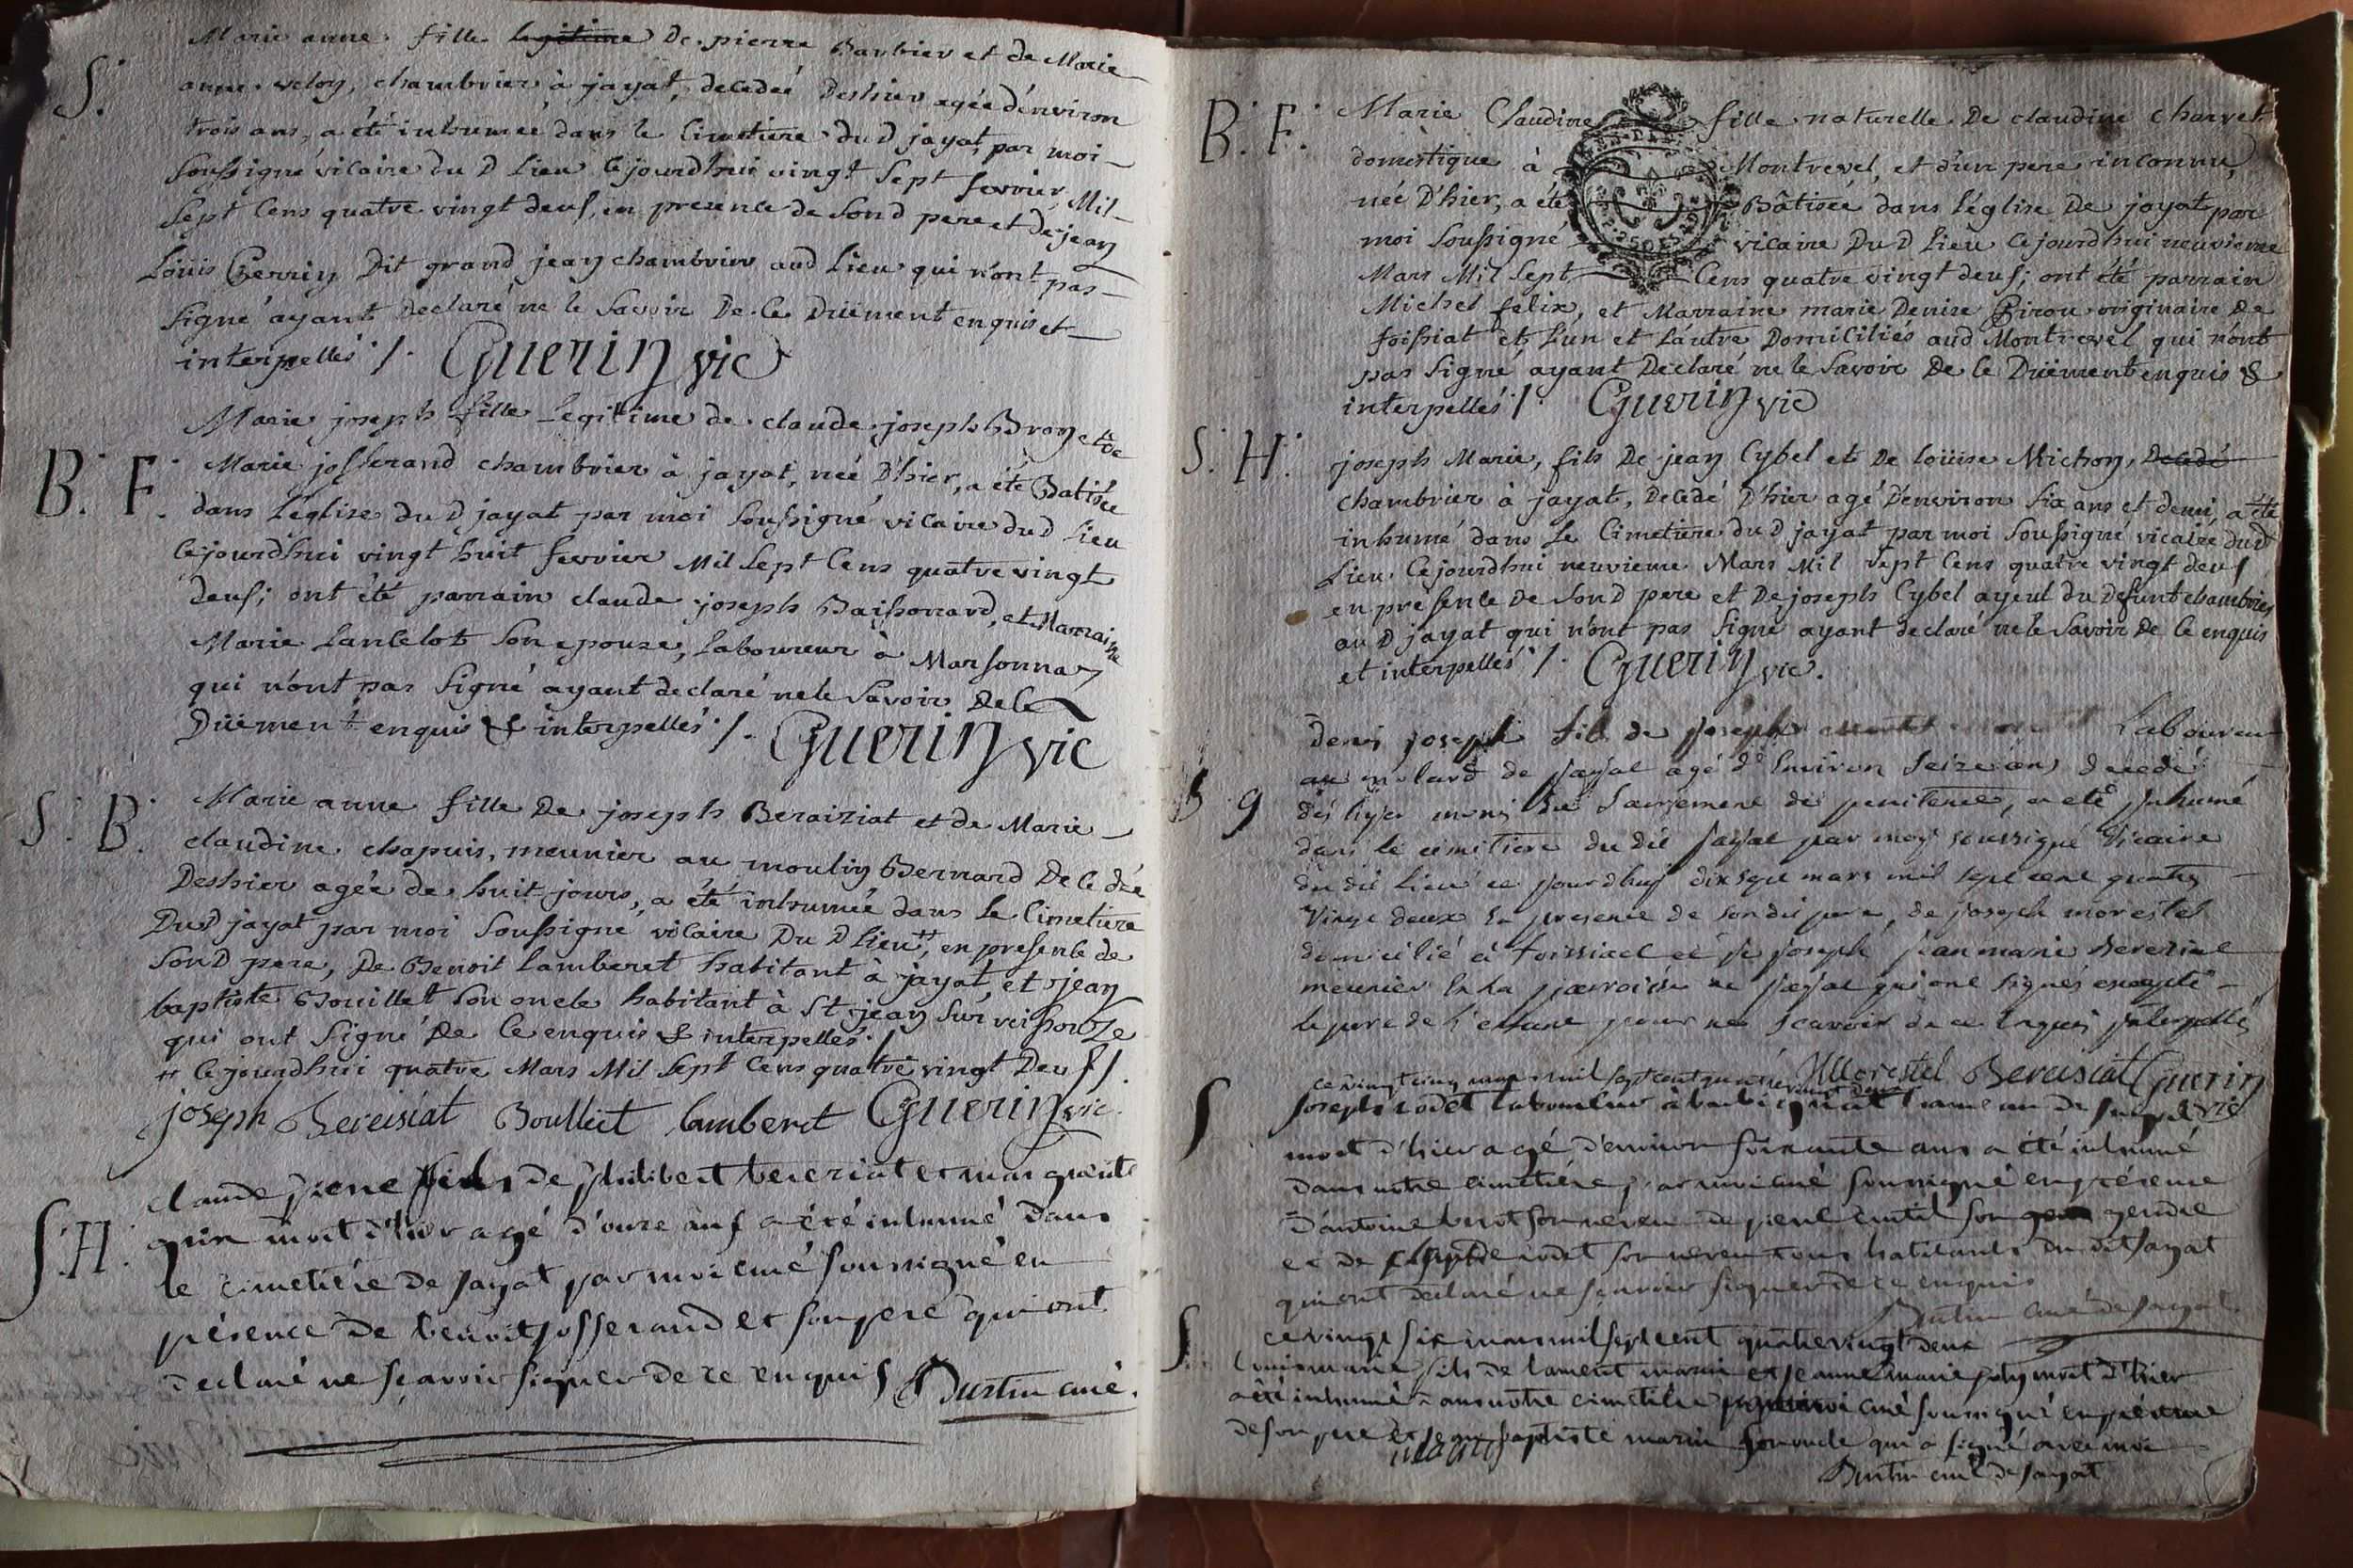 Marie anne fille legitime De pierre Barbier et de Marie
S. anne veloy, chambrier à jayat, decedeé Deshier agée d'environ
trois ans, a été inhumeé dans le Cimetiere du D jayat, par moi
soussigné vicaire du D Lieu cejourdhui vingt sept fevrier, Mil
sept Cens quatre vingt deus, en presence de Son D pere et de jean
Loüis Perrin Dit grand jean chambrier aud Lieu qui n'ont pas
signé ayant Declaré ne le Savoir De Ce Düement enquis et
interpellés ./. Guerin vic
Marie joseph fille Legitime de claude joseph Broy et de
B. F. Marie josserand chambrier à jayat, née D'hier, a été Batisée
dans l'eglise du D jayat par moi soussigné vicaire du D Lieu
Cejourdhui vingt huit fevrier Mil Sept Cens quatre vingt
deus; ont été parrain claude joseph Baissonard, et Marraine
Marie Lancelot Son epouse, laboureur à Marsonnaz
qui n'ont pas Signé ayant declaré ne le Savoir De Ce
Düement enquis & interpellés ./. Guerin vic
S. B. Marie anne fille De joseph Beraiziat et de Marie
claudine chapuis, meunier au moulin Bernard Decedée
Deshier agée de huit jours, a été inhumée dans le Cimetiere
Dud jayat par moi Soussigné vicaire Du D Lieu #, en presence de
Son D pere, De Benoit Lamberet habitant à jayat, et jean
baptiste Bouillet Son oncle habitant à St jean Sur veissouze
qui ont Signé De Ce enquis & interpellés ./.
# Cejourdhui quatre Mars Mil Sept Cens quatre vingt Deus /.
joseph Bereisiat Boulliet lamberet Guerin vic.
claude piere fils de philibert bereziat et marguerite
S. H. guin mort d'hier agé d'onze ans a été inhumé dans
le cimetière de jayat par moi curé soussigné en
présence de benoit josserand et son pere qui ont
declaré ne sçavoir signer de ce enquis Burtin curé.
B. F. Marie Claudine fille naturelle De claudine charvet
domestique à Montrevel, et d'un pere inconnu,
née D'hier, a été Bâtisée dans l'église De jayat par
moi Soussigné vicaire Du D Lieu Cejourdhui neuvieme
Mars Mil Sept Cens quatre vingt deus; ont été parrain
Michel felix, et Marraine marie Denise Pirou originaire De
foissiat et L'un et L'autre Domiciliés aud Montrevel qui n'ont
pas Signé ayant Declaré ne le Savoir De Ce Düement enquis &
interpellés ./. Guerin vic
S. H. joseph Marie, fils De jean Cybel et De Loüise Michon, Decedé
chambrier à jayat, Decedé D'hier agé D'environ Six ans et demi, a été
inhumé dans Le Cimetiere du D jayat par moi Soussigné vicaire dud
Lieu. Cejourdhui neuvieme Mars Mil Sept Cens quatre vingt deus
en présence De Son D pere et De joseph Cybel ayeul du Defunt chambrier
au D jayat qui n'ont pas Signé ayant declaré ne le Savoir De Ce enquis
et interpellés ./. Guerin vic.
denis joseph fils de joseph Laboureur
au molard de jayat agé d'Environ Seize ans decedé
g dès hyer muni du Sacrement de penitence, a eté Inhumé
dans le cimitiere du dit jayat par moy soussigné Vicaire
du dit Lieu ce jourdhuy dix sept mars mil sept cent quatre
Vingt deux En presence de son dit pere, de joseph morestel
domicilié à foissiact et de joseph jean marie Bereziat
meunier En La parroisse de jayat qui ont signés excepté
le pere de l'enfant pour ne scavoir de ce Enquis Interpellés
Morestel Bereisiat Guerin vic
ce vingt cinq mars mil sept cent quatre vingt deux
S joseph rodet laboureur à hameau de jayat
mort d'hier agé d'environ soixante ans a été inhumé
dans notre cimetière, par moi curé soussigné en présence
D'antoine son neveu de piere son gendre
et de rodet son neveu tous habitants du dit jayat
qui ont declaré ne sçavoir signer de ce enquis
Burtin curé de jayat.
S. ce vingt six mars mil sept cent quatre vingt deux
Louis marie fils de laurent marin et jeanne marie poly mort d'hier
a été inhumé dans notre cimetière par moi curé soussigné en présence
de son pere et jean baptiste marin son oncle qui a signé avec moi
marin Burtin curé de jayat